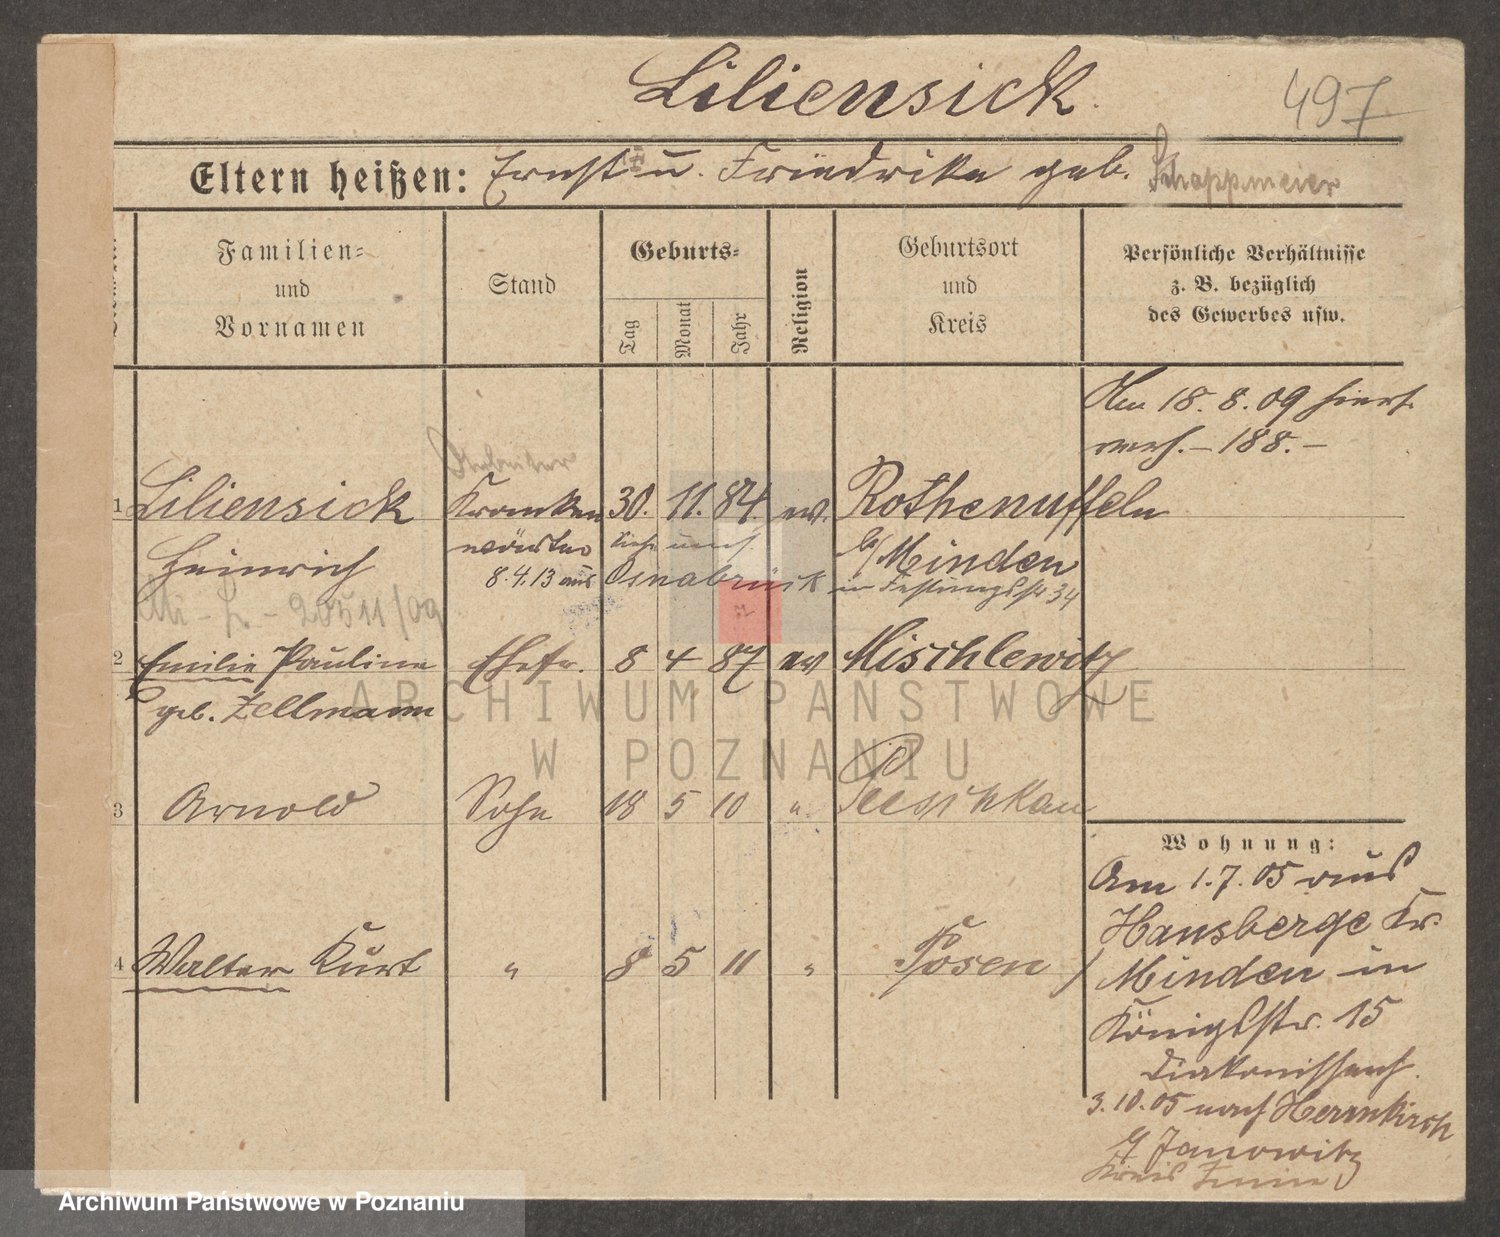 Liliensick
497
Eltern heißen: Ernst u. Friedrike geb. Schappmeier
Familien- und Vornamen
Stand
Geburts-
Tag
Monat
Jahr
Religion
Geburtsort und Kreis
Persönliche Verhältnisse
z. B. bezüglich
des Gewerbes usw.
Am 18. 8. 09 hierf.
verh. – 188. –
Arbeiter
1 Liliensick Kranken 30. 11. 84. ev. Rothenuffeln
Heinrich wärter b/ Minden
8.4.13 aus Osnabrück in Festungsstr 34
20511/09
2 Emilie Pauline Ehefr. 8 4 87 ev Mischlewitz
geb. Zellmann
3 Arnold Sohn 18 5 10 " Peeschkau
4 Walter Kurt " 8 5 11 " Posen
Wohnung:
Am 1.7.05 aus
Hausberge Kr.
Minden in
Königstr. 15
Diakonissenh.
3.10.05 nach Herrnkirch
Janowitz
Kreis Znin
ARCHIWUM PAŃSTWOWE
W POZNANIU
Archiwum Państwowe w Poznaniu